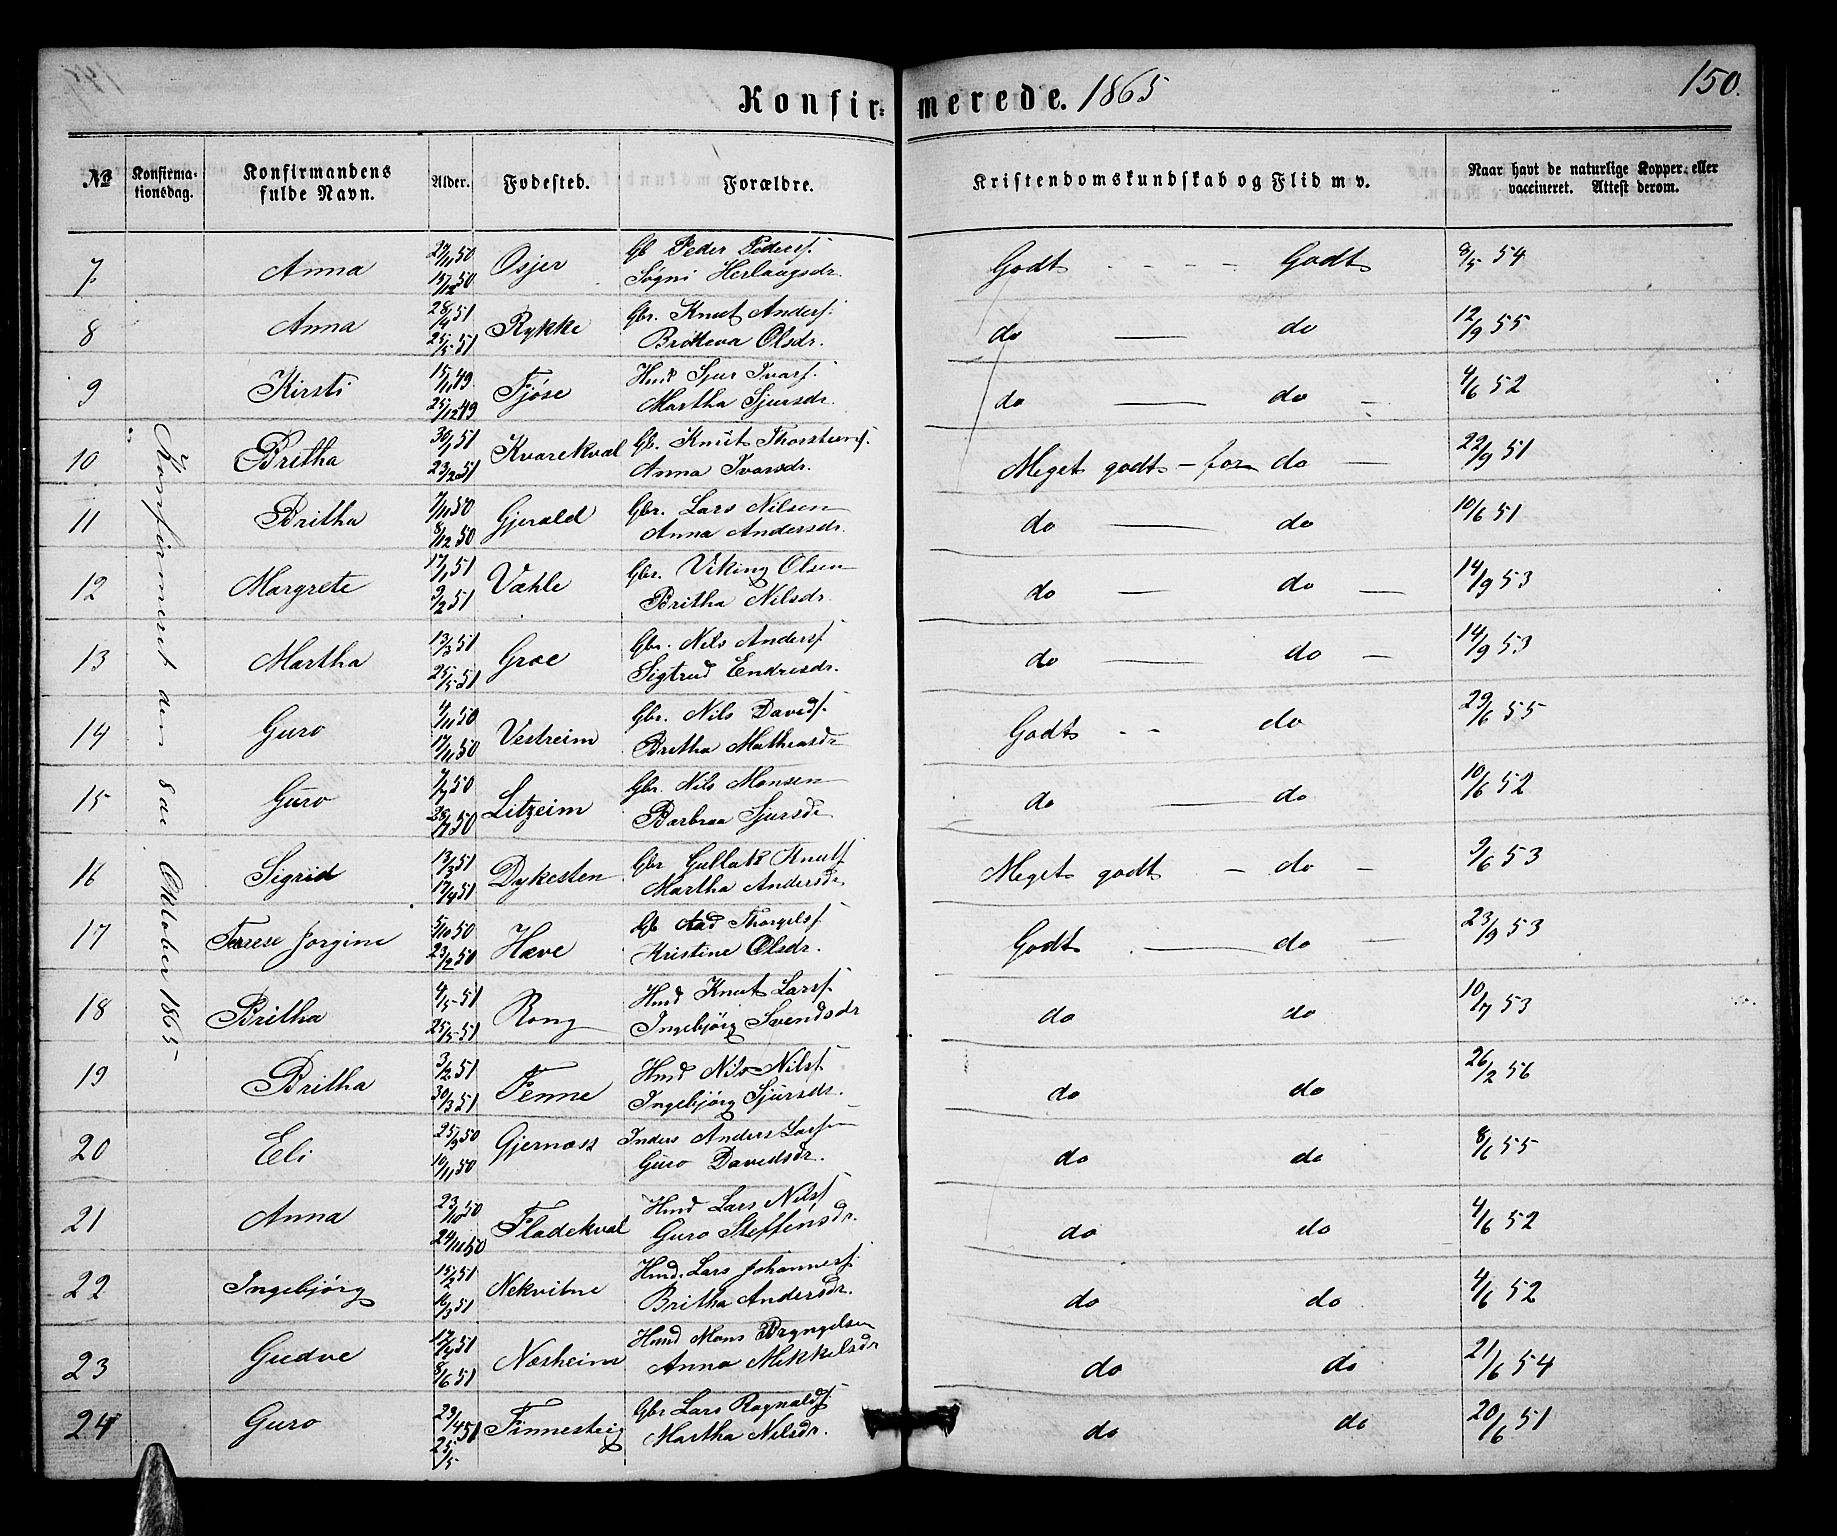 Konfir=merede. 1865
150.
No Konfirmationsdag. Konfirmandens fulde Navn. Alder. Fødested. Forældre. Kristendomskundskab og Flid m v. Naar havt de naturlige Kopper eller vaccineret. Attest derom.
Konfirmeret den 8de Oktober 1865
7 Anna 27/11 50 15/12 50 Osjer Gb Peder Peders. Søgni Herlaugsdr. Godt - - - - Godt 9/5 54
8 Anna 28/4 51 25/5 51 Rykke Gbr. Knut Anders. Britheva Olsdr. do — do 12/9 55
9 Kirsti 15/11 49 25/12 49 Fjøse Hmd Sjur Ivars. Martha Sjursdr. do — do — 4/6 52
10 Britha 30/1 51 23/2 51 Kvarekval Gb. Knut Thorstens. Anna Ivarsdr. Meget godt - for do — 22/9 51
11 Britha 7/11 50 8/12 50 Gjerald Gbr. Lars Nilsen Anna Andersdr. do — do 10/6 51
12 Margrete 17/1 51 9/2 51 Væhle Gbr. Viking Olsen Britha Nilsdr. do — do — 14/9 53
13 Martha 13/3 51 25/5 51 Groe Gbr. Nils Anders. Sigtrud Endresdr. do — do — 14/9 53
14 Guro 4/11 50 17/11 50 Vestreim Gbr. Nils Davids. Britha Mathiasdr Godt - - do 29/6 55
15 Guro 7/7 50 28/7 50 Litzeim Gbr. Nils Monsen Barbraa Sjursdr do — do 10/6 52
16 Sigrid 13/3 51 17/4 51 Dykesten Gbr Gullak Knuts. Martha Andersdr Meget godt - do - 9/6 53
17 Terese Jorgine 5/10 50 23/2 50 Hæve Gb Aad Thorgels. Kristine Olsdr. Godt — do — 23/9 53
18 Britha 4/5 51 25/5 51 Rong Hmd Knut Lars. Ingebjørg Svendsdr do do 10/7 53
19 Britha 3/2 51 30/3 51 Fenne Hmd Nils Nils. Ingebjørg Sjursdr. do do 26/2 56
20 Eli 25/9 50 10/11 50 Gjernæss Inders Anders Larsen Guro Davidsdr. do do 8/6 55
21 Anna 23/10 50 24/11 50 Fladekval Hmd Lars Nils. Guro Steffensdr. do do 4/6 52
22 Ingebjørg 15/2 51 16/3 51 Nekvitne Hmd. Lars Johannes. Britha Andersdr. do do 4/6 52
23 Gudve 17/4 51 8/6 51 Næsheim Hmd Mons Bryngelsen Anna Mikkelsdr do do 21/6 54
24 Guro 29/4 51 25/5 Finnesteig Gbr Lars Ragnalds. Martha Nilsdr. do do 20/6 51